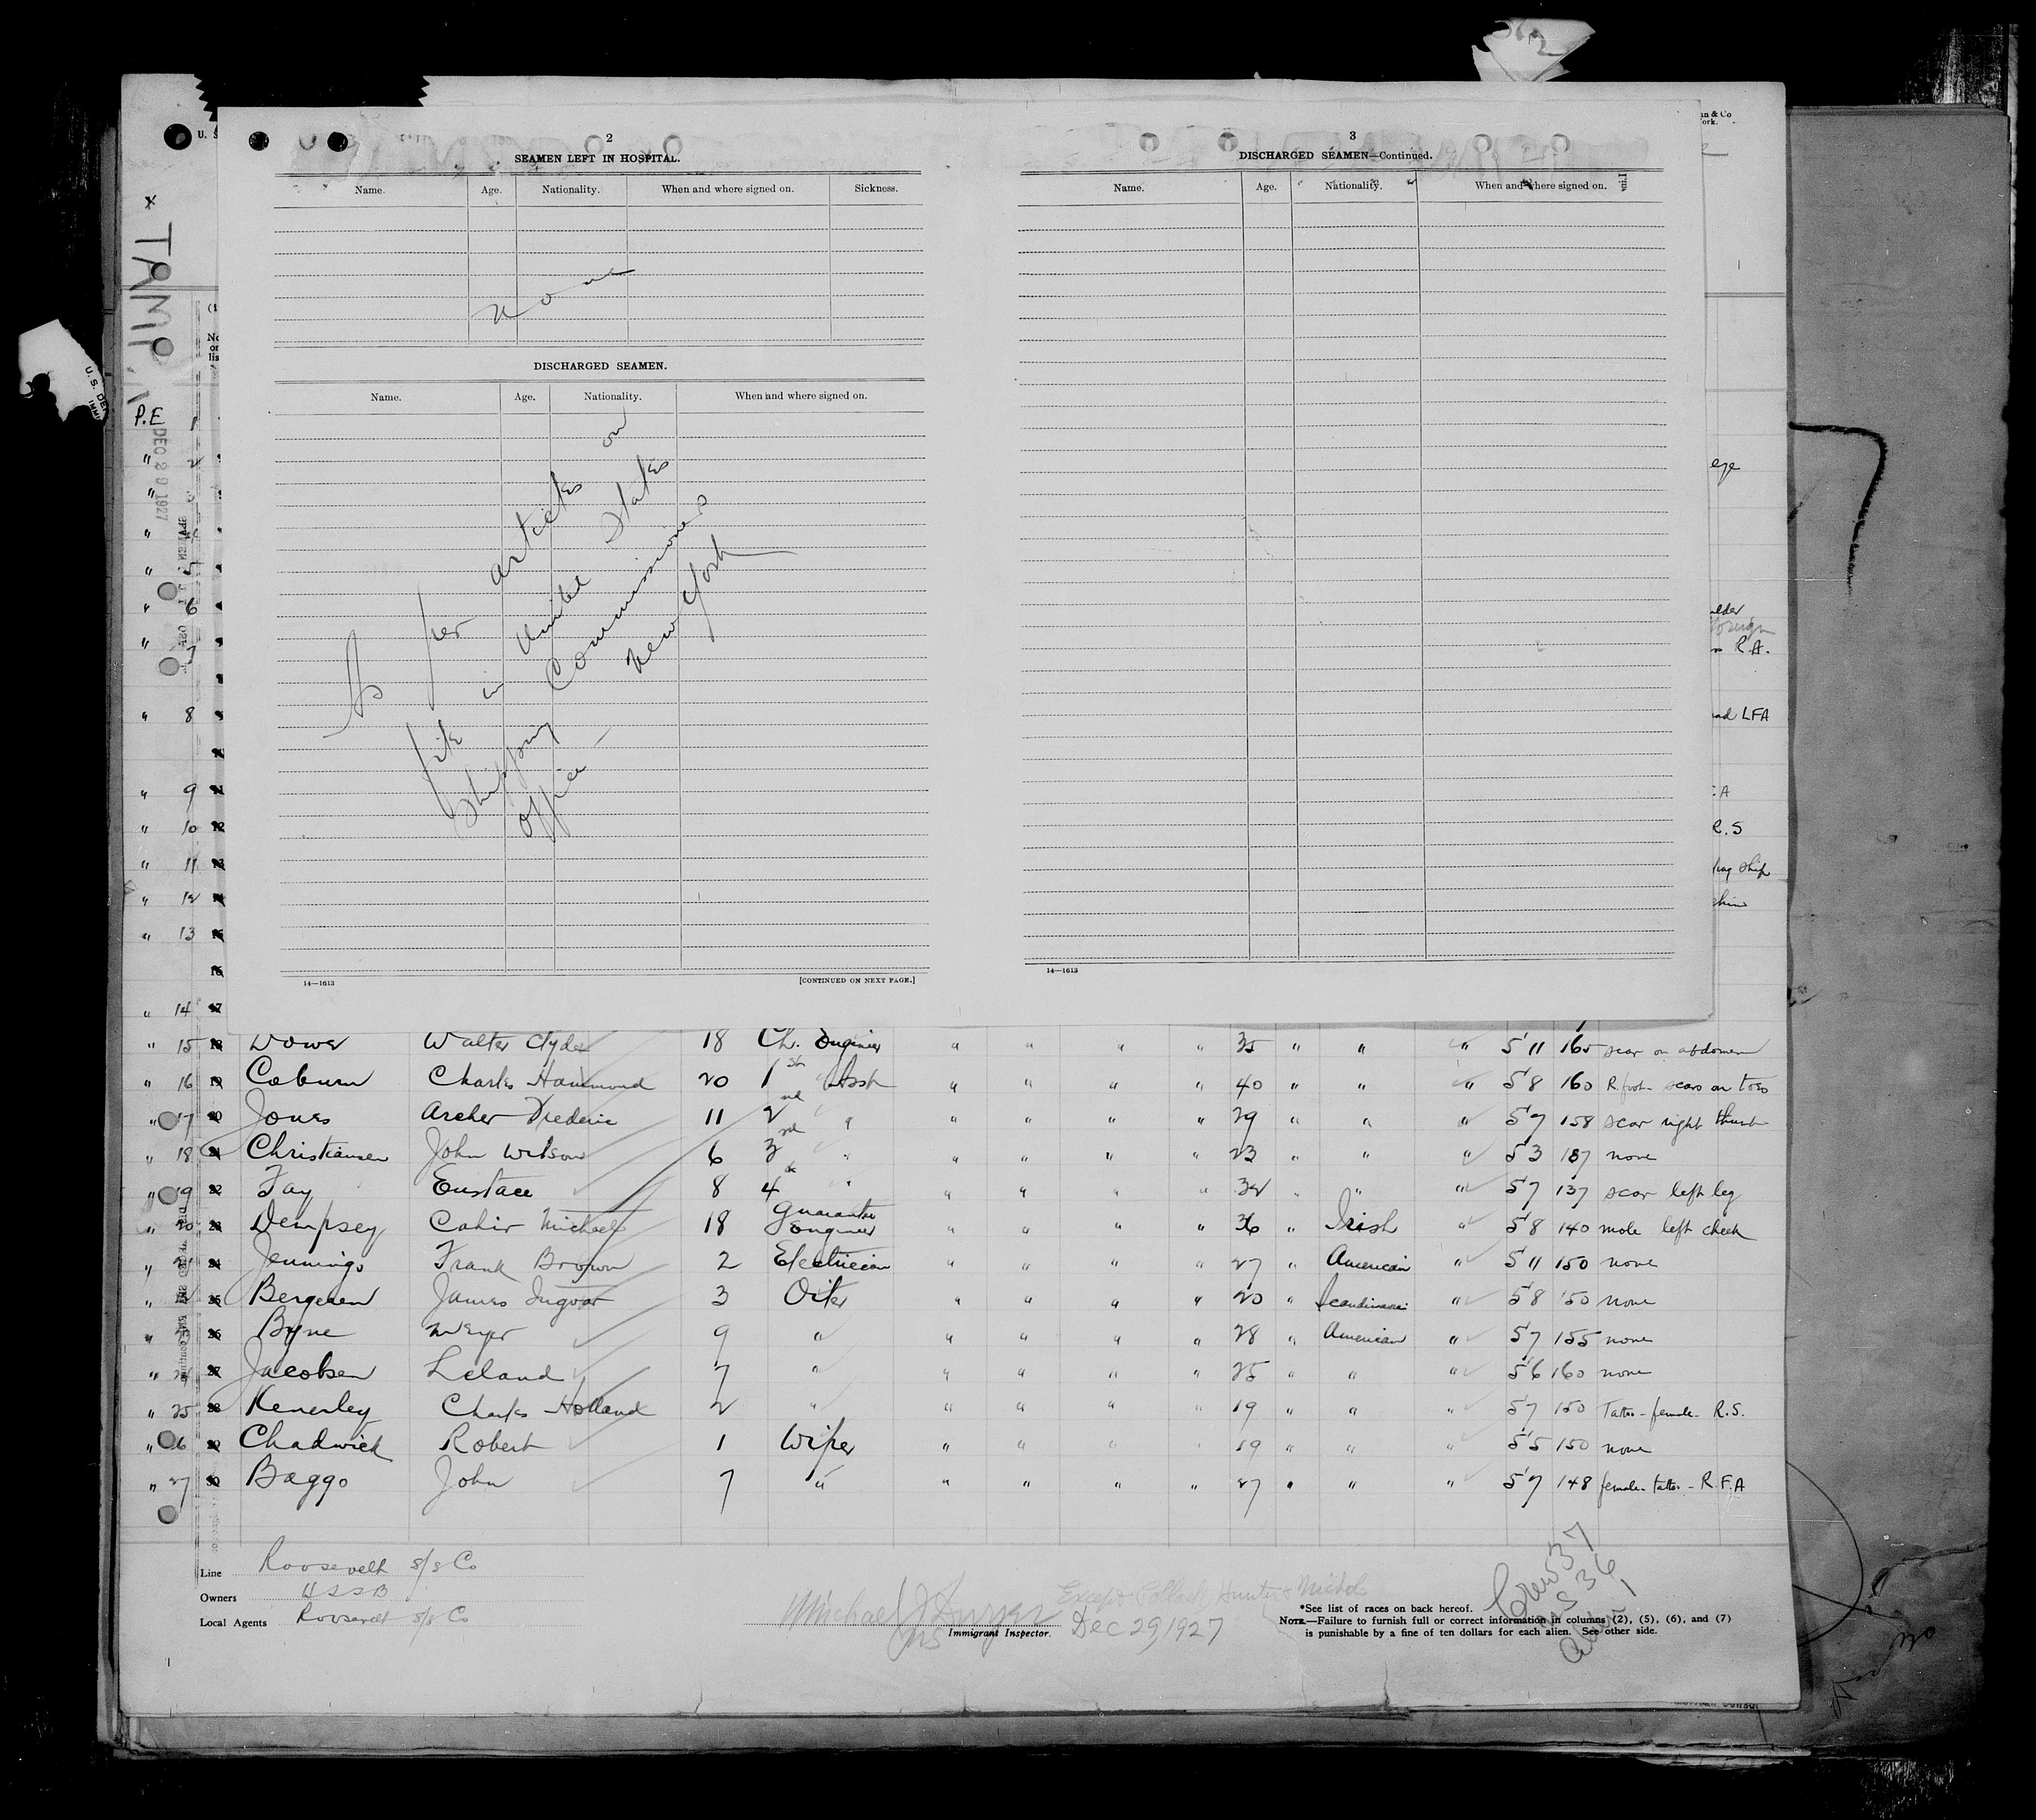 2
SEAMEN LEFT IN HOSPITAL.
Name. Age. Nationality. When and where signed on. Sickness.
none
DISCHARGED SEAMEN.
Name. Age. Nationality. When and where signed on.
As per articles on
file in United States
Shipping Commissioners
office - New York
14—1613 [CONTINUED ON NEXT PAGE.]
3
DISCHARGED SEAMEN—Continued.
Name. Age. Nationality. When and where signed on.
14—1613
TAMPA
P.E 1
DEC 29 1927
" 6
" 7
" 8
" 9
" 10
" 11
" 12
" 13
" 14
eye
R.A.
LFA
R.S
ship
" 15 Walter Clyde 18 Ch. Engineer " " " " 35 " " " 5'11 165 scar on abdomen
" 16 Coburn Charles Hammond 20 1st Asst " " " " 40 " " " 5'8 160 R. foot - scars on toes
" 17 Jones Archer Frederic 11 2nd " " " " " 29 " " " 5'7 158 scar right thumb
" 18 Christiansen John Wilson 6 3rd " " " " " 23 " " " 5'3 137 none
" 19 Fay Eustace 8 4th " " " " " 32 " " " 5'7 137 scar left leg
" 20 Dempsey Cahir Michael 18 Guarantee Engineer " " " " 36 " Irish " 5'8 140 mole left cheek
" 21 Jennings Frank Brown 2 Electrician " " " " 27 " American " 5'11 150 none
" Bergesen James Ingvar 3 Oiler " " " " 20 " Scandinavian " 5'8 150 none
" Byne Meyer 9 " " " " " 28 " American " 5'7 155 none
" 24 Jacobsen Leland 7 " " " " " 25 " " " 5'6 160 none
" 25 Kenerley Charles Holland 2 " " " " " 19 " " " 5'7 150 Tattoo - female - R.S.
" 26 Chadwick Robert 1 Wiper " " " " 19 " " " 5'5 150 none
" 27 Baggo John 7 " " " " " 27 " " " 5'7 148 female - tattoo - R.F.A
Line Roosevelt S/S Co
Owners USSB
Local Agents Roosevelt S/S Co
Except Pollack, Hunter & Michel
Michael
Immigrant Inspector. Dec 29, 1927
*See list of races on back hereof.
NOTE.—Failure to furnish full or correct information in columns (2), (5), (6), and (7)
is punishable by a fine of ten dollars for each alien. See other side.
Crew 37
US 36
Alien 1